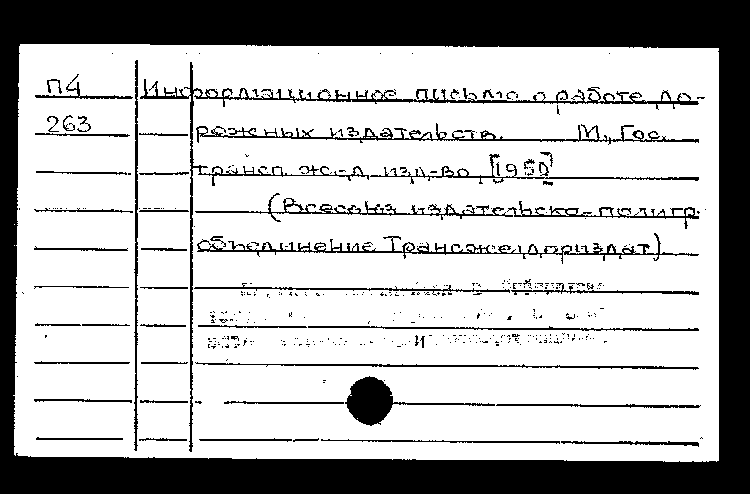 П4 Информационное письмо о работе до-
263 рожных издательств. М., Гос.
трансп. ж.-д. изд-во, [1950]
(Всесоюз. издательско-полигр.
объединение Трансжелдориздат)